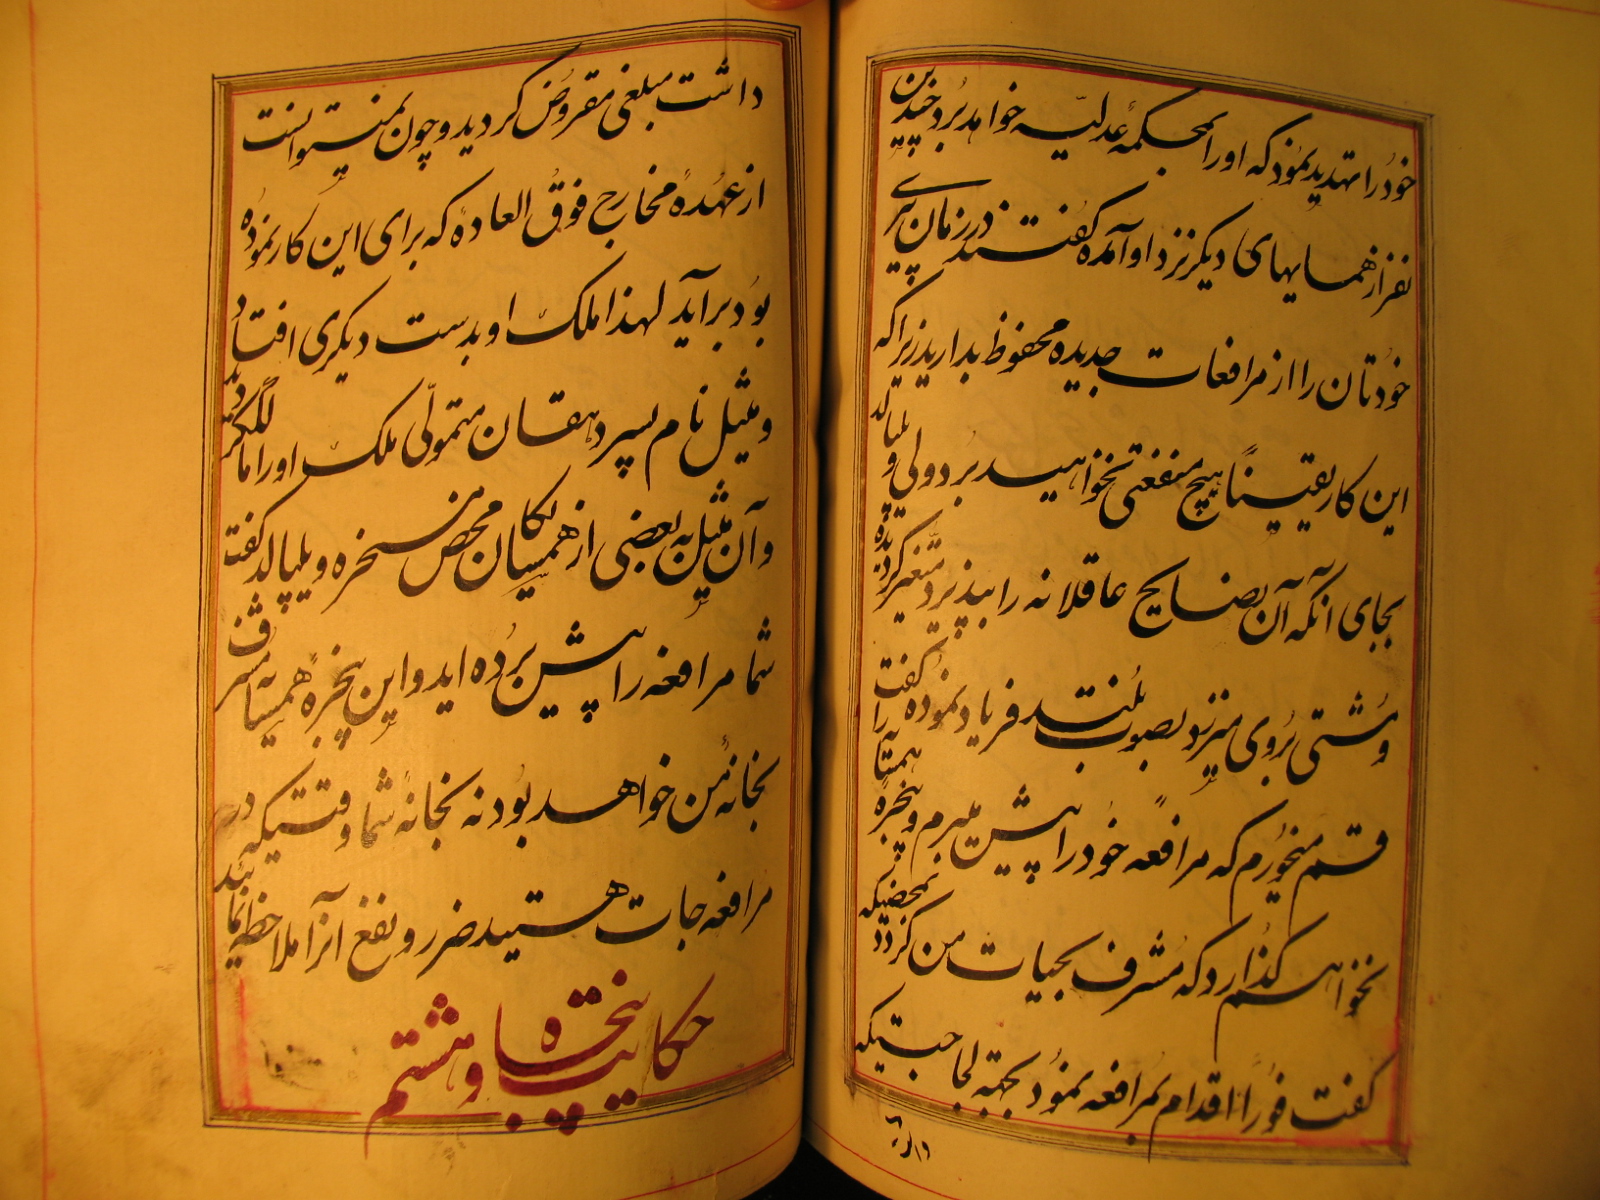 خود را تهدید نمود که او را بمحکمهٔ عدلیه خواهد برد چندین
نفر از همسایهای دیکر نزد او آمده کفتند در زمان پیری
خودتان را از مرافعات جدیده محفوظ بدارید زیرا که
این کار یقیناً هیچ منفعتی نخواهید برد ولی ویلپالد
بجای آنکه آن نصایح عاقلانه را بپذیرد متغیر کردیده
و مشتی بروی میز زد بصوت بلند فریاد نموده کفت
قسم میخورم که مرافعه خود را پیش میبرم و پنجره همسایه را
نخواهم کذارد که مشرف بحیات من کردد بمحضیکه
کفت فوراً اقدام بمرافعه نمود بجهة لجاجتیکه
داشت مبلغی مقروض کردید و چون نمیتوانست
از عهدهٔ مخارج فوق العاده که برای این کار نموده
بود برآید لهذا ملک او بدست دیکری افتاد
و میٔیل نام پسر دهقان متمولی ملک او را مالک کردید
و آن میٔیل به بعضی از همسایکان محض مسخره ویلپالد کفت
شما مرافعه را پیش برده اید و این پنجرهٔ همسایه مشرف
بخانهٔ من خواهد بود نه بخانهٔ شما وقتیکه در
مرافعه جات هستید ضرر و نفع آنرا ملاحظه نمائید
حکایت پنجاه و هشتم